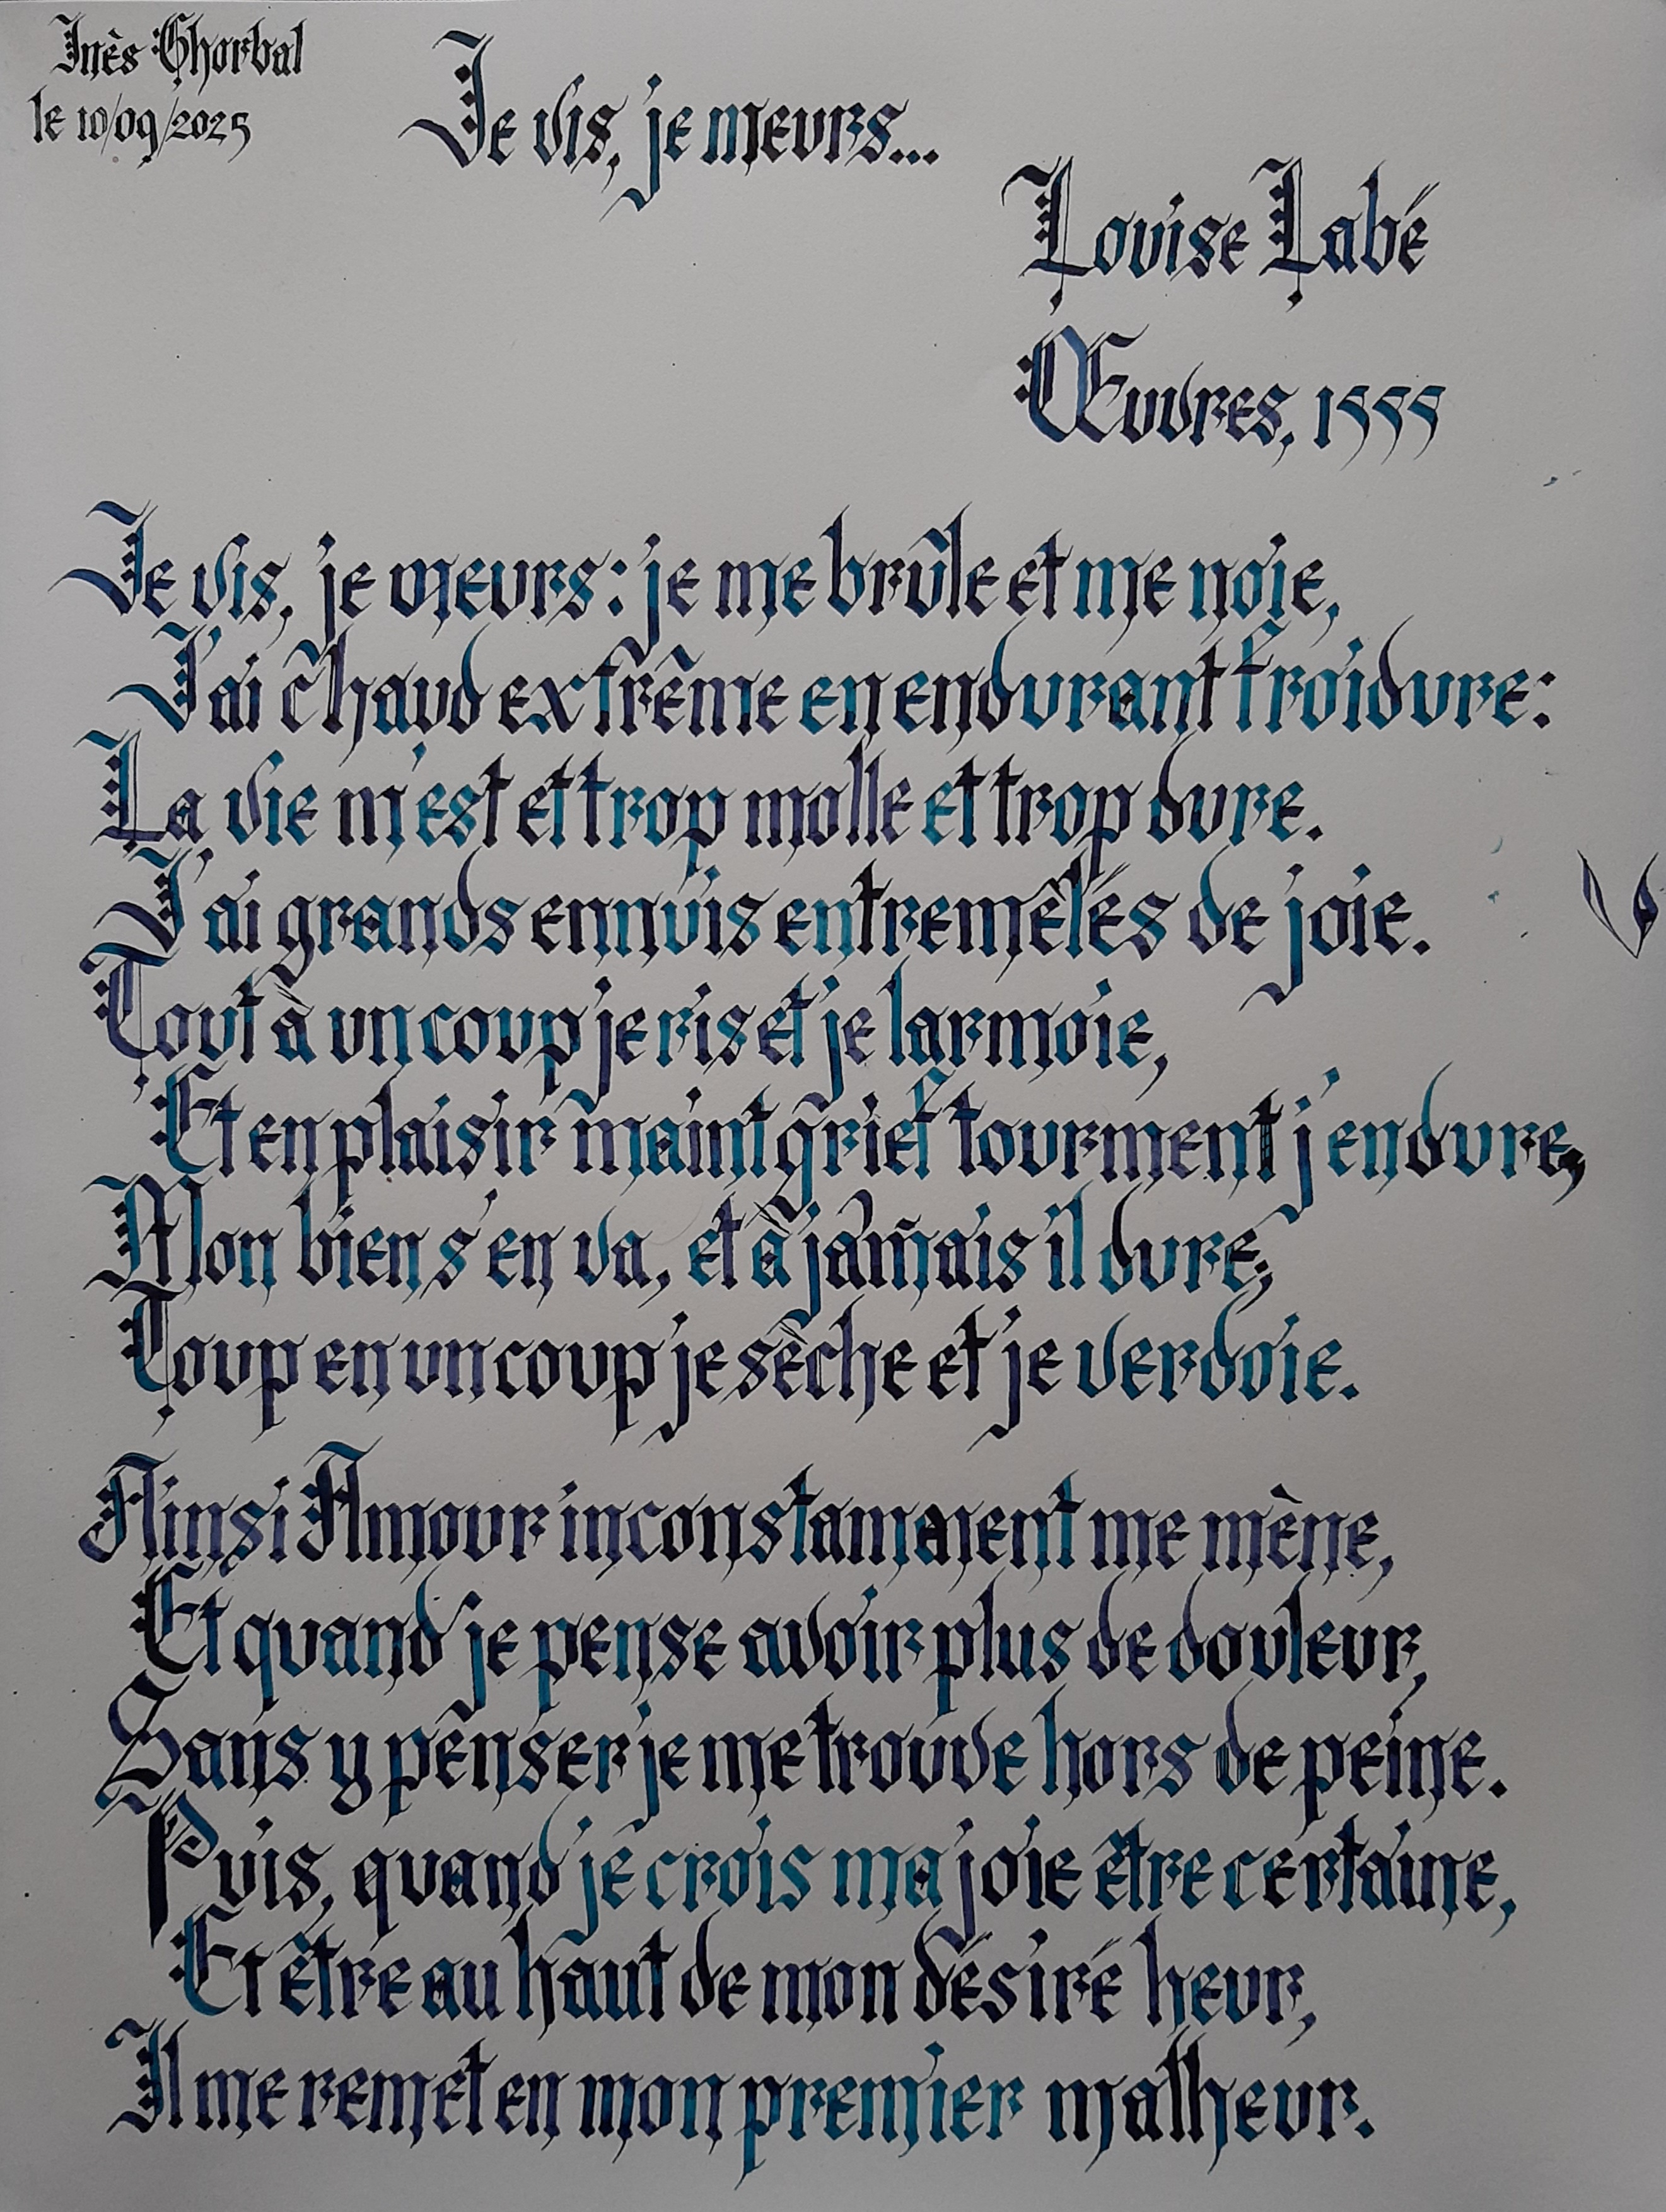 Inès Ghorbal
le 10/09/2025
Je vis, je meurs...
Louise Labé
Œuvres, 1555
Je vis, je meurs : je me brûle et me noie,
J'ai chaud extrême en endurant froidure :
La vie m'est et trop molle et trop dure.
J'ai grands ennuis entremêlés de joie.
Tout à un coup je ris et je larmoie,
Et en plaisir maint grief tourment j'endure,
Mon bien s'en va, et à jamais il dure;
Toup en un coup je sèche et je verdoie.
Ainsi Amour inconstamment me mène,
Et quand je pense avoir plus de douleur,
Sans y penser je me trouve hors de peine.
Puis, quand je crois ma joie être certaine,
Et être au haut de mon désiré heur,
Il me remet en mon premier malheur.